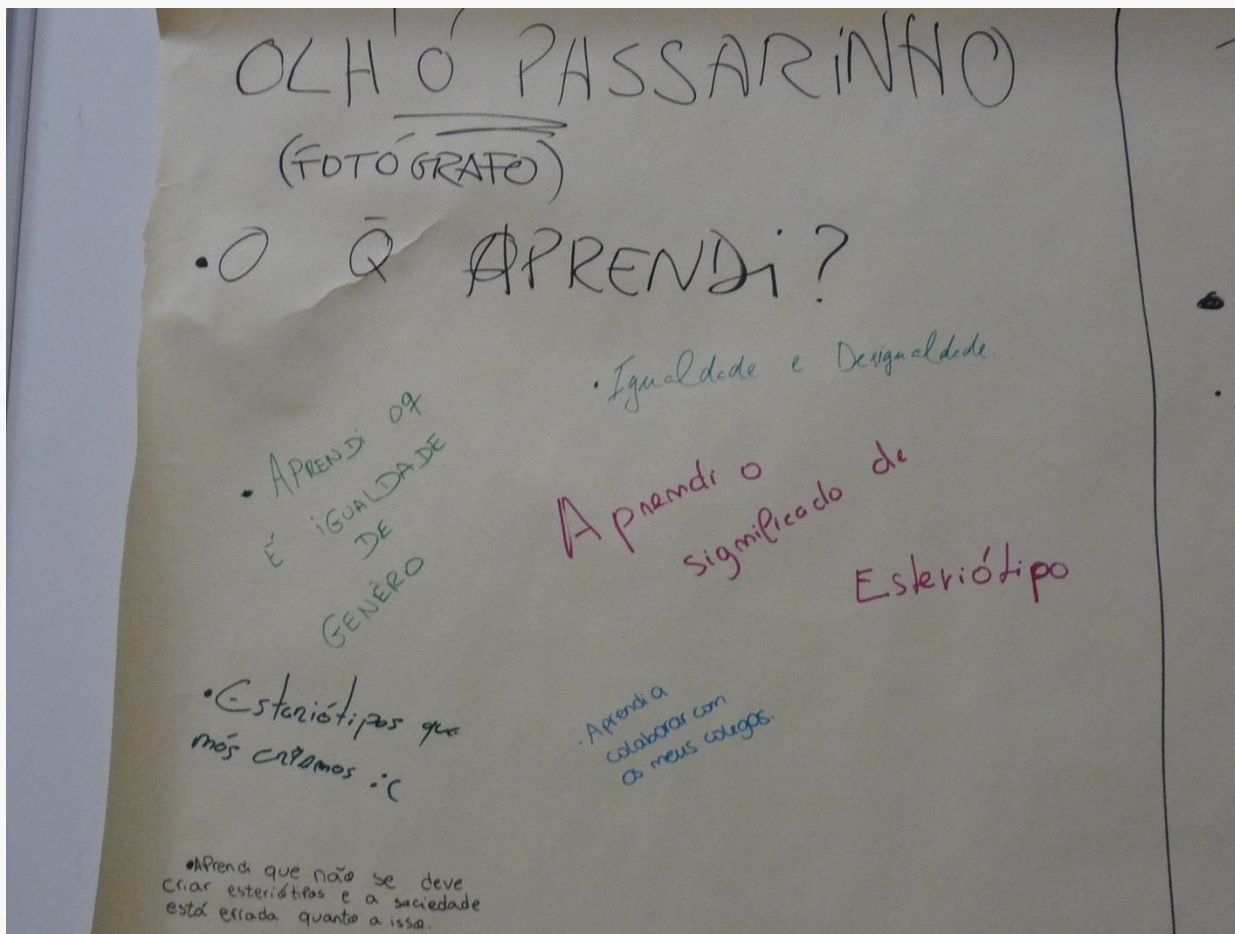 OLH'Ó PASSARINHO
(FOTÓGRAFO)
• O Q̄ APRENDi?
• Igualdade e Desigualdade.
• APRENDi oq
É iGUALDADE
DE
GENÈRO
Aprendi o
significado de
Esteriótipo
• Esteriótipos que
nós criamos :(
• Aprendi a
colaborar com
os meus colegas.
• APrendi que não se deve
criar esteriótipos e a sociedade
está errada quanto a isso.